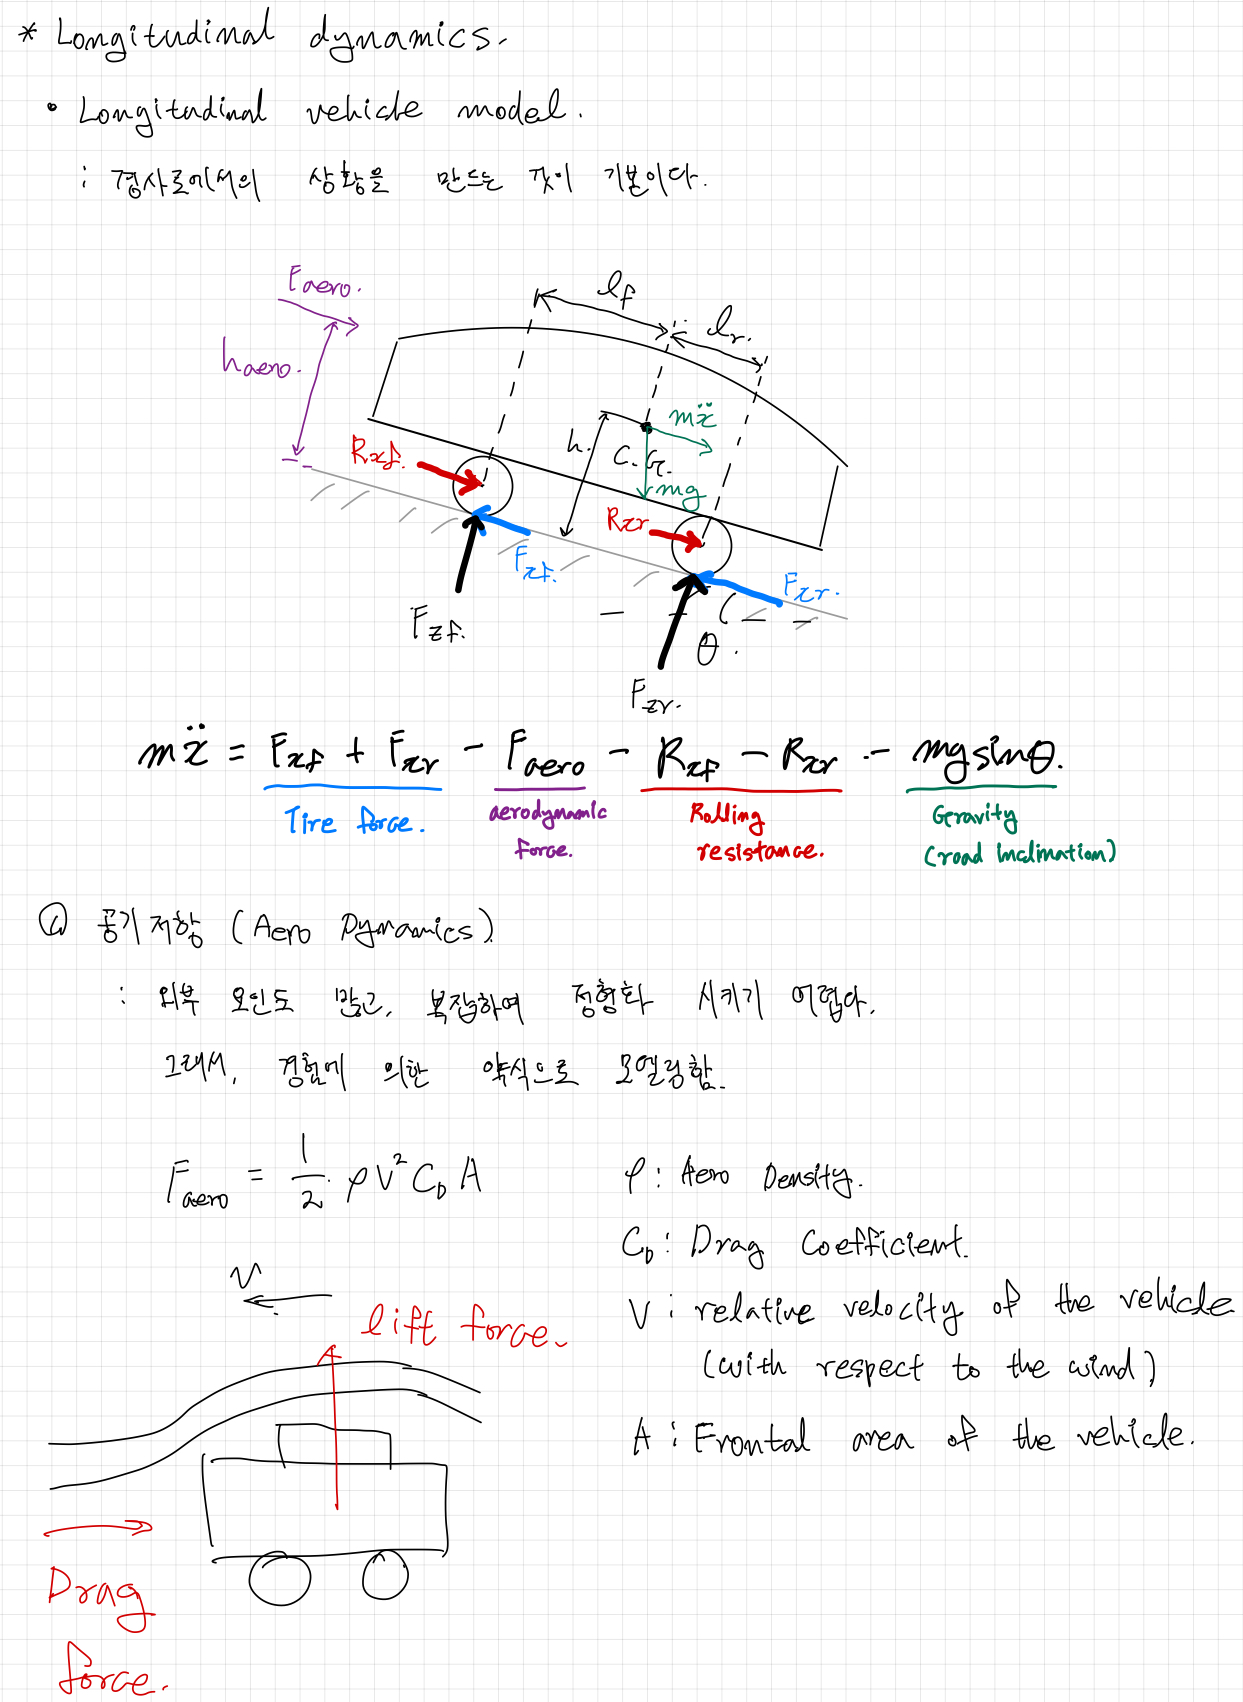 * Longitudinal dynamics.
• Longitudinal vehicle model.
: 경사로에서의 상황을 만드는 것이 기본이다.
F aero.
h aero.
l f
l r.
mẍ
C.G.
mg
h.
Rxf.
Rxr
Fxf.
Fxr.
Fzf.
Fzr.
θ.
mẍ = Fxf + Fxr - Faero - Rxf - Rxr - mg sinθ.
Tire force.
aerodynamic force.
Rolling resistance.
Geravity (road inclination)
ⓐ 공기저항 (Aero Dynamics)
: 외부 요인도 많고, 복잡하여 정형화 시키기 어렵다.
그래서, 경험에 의한 약식으로 모델링함.
Faero = 1/2 ρV²C_D A
ρ : Aero Density.
C_D : Drag Coefficient.
V : relative velocity of the vehicle
(with respect to the wind)
A : Frontal area of the vehicle.
V
lift force.
Drag
force.